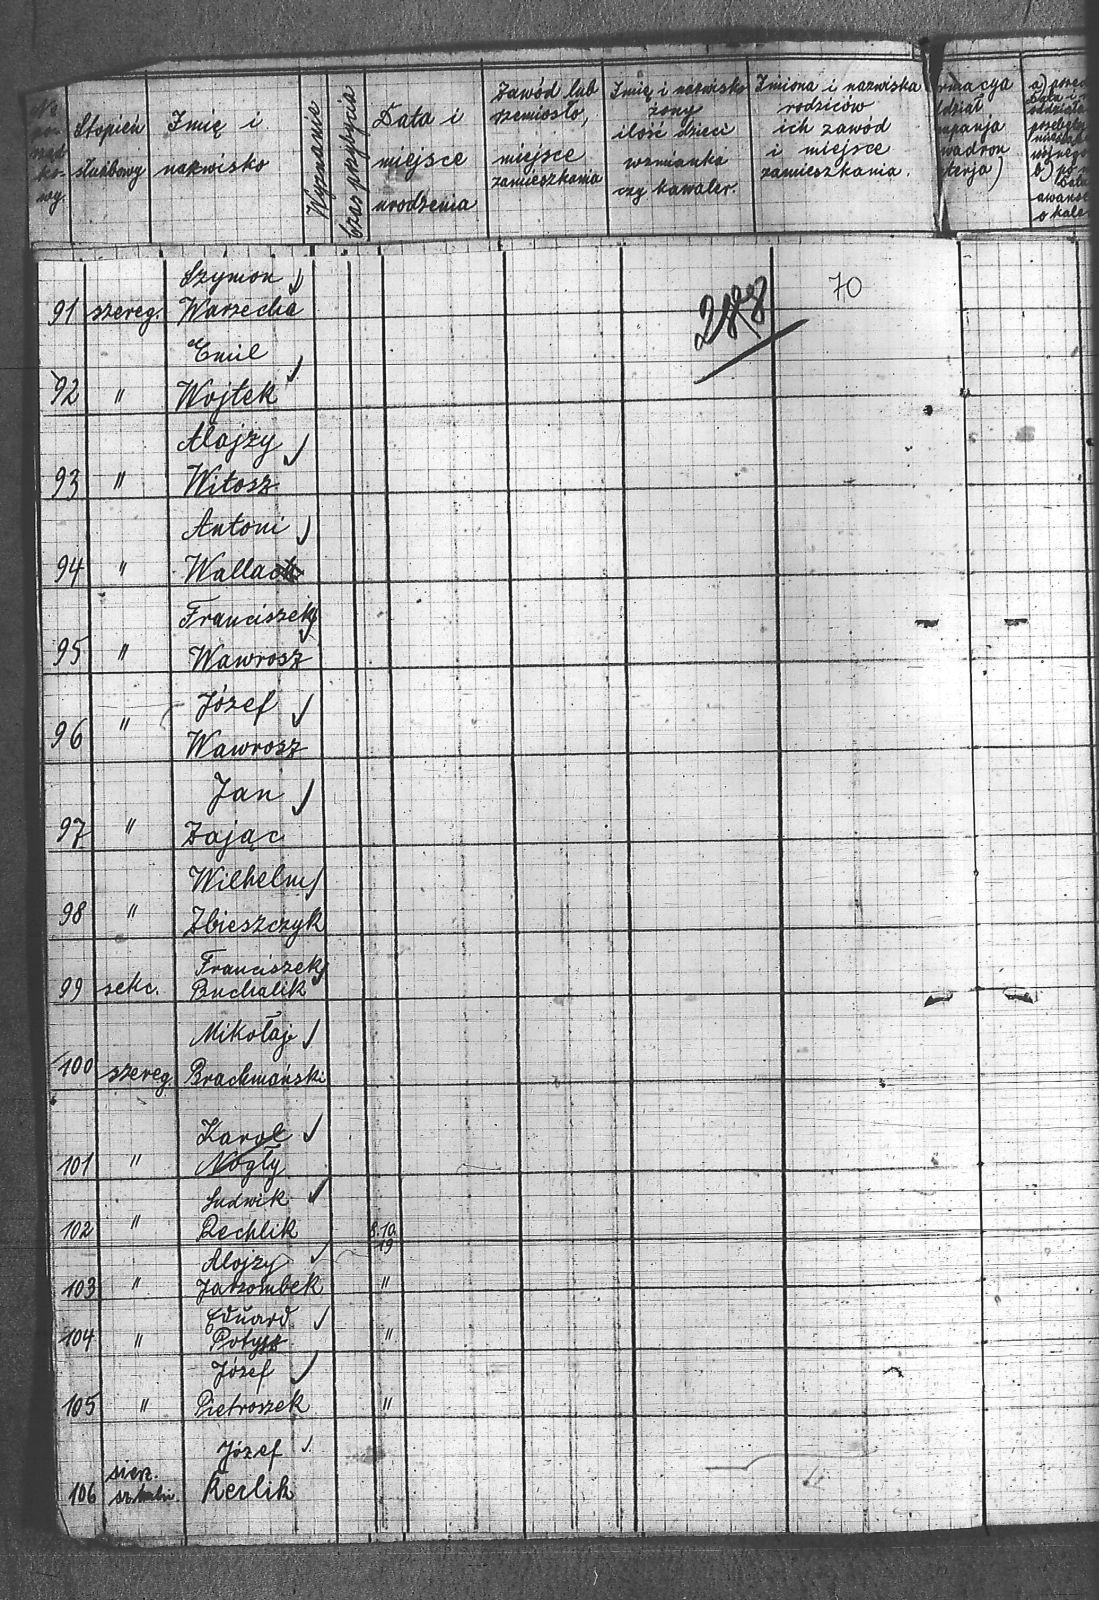 No
Stopień
służbowy
Imię i
nazwisko
Wyznanie
Czas przybycia
Data i
miejsce
urodzenia
Zawód lub
rzemiosło,
miejsce
zamieszkania
Imię i nazwisko
żony
ilość dzieci
wzmianka
czy kawaler.
Imiona i nazwiska
rodziców
ich zawód
i miejsce
zamieszkania.
rmacya
ddział
mpanja
wadron
terja)
288
70
Szymon
91 szereg. Warzecha
Emil
92 " Wojtek
Alojzy
93 " Witosz
Antoni
94 " Wallach
Franciszek
95 " Wawrosz
Józef
96 " Wawrosz
Jan
97 " Zając
Wilhelm
98 " Zbieszczyk
Franciszek
99 sekc. Buchalik
Mikołaj
100 szereg Brachmański
Karol
101 " Nogły
Ludwik
102 " Rechlik 8.10.
19
Alojzy
103 " Jarzombek "
Eduard
104 " "
Józef
105 " Pietroszek "
Józef
sierż.
106 Kerlik